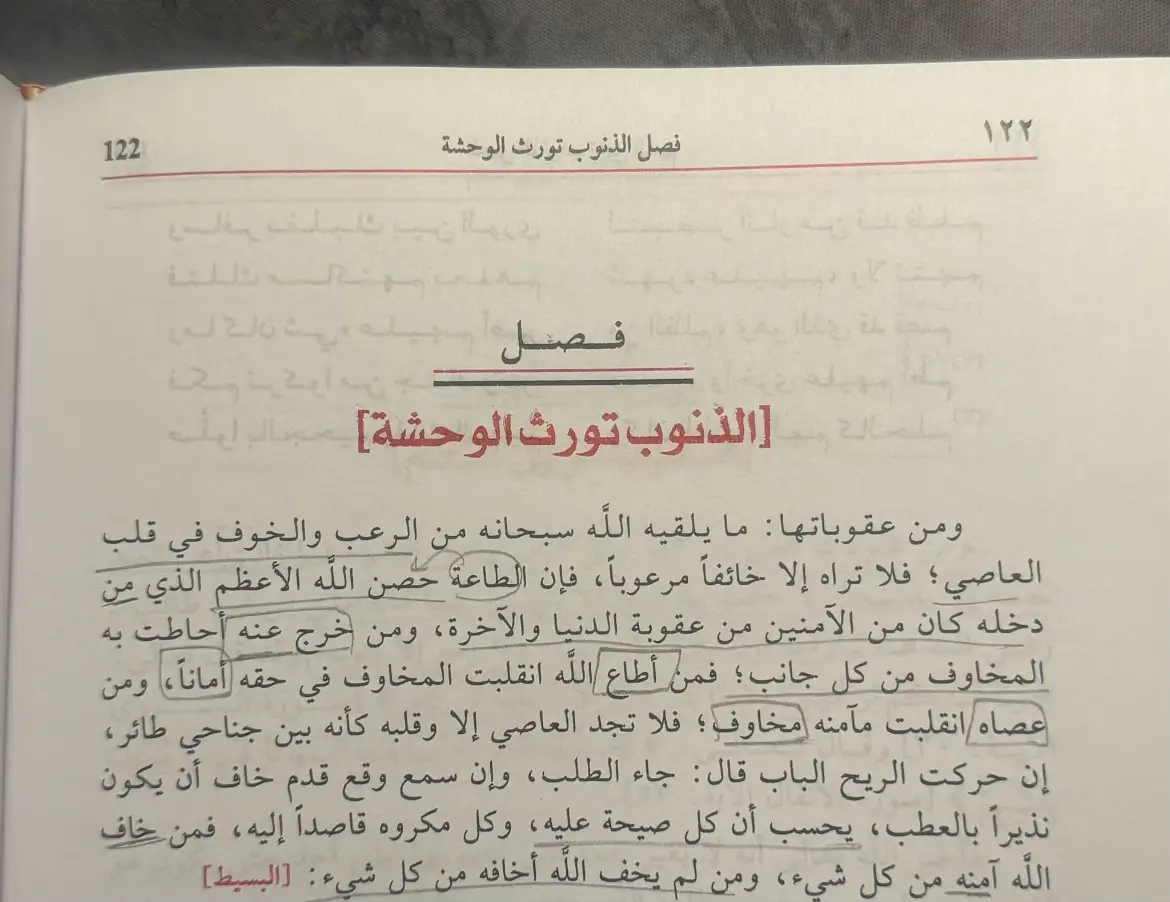 ١٢٢ فصل الذنوب تورث الوحشة 122
فـــصـــل
[الذنوب تورث الوحشة]
ومن عقوباتها: ما يلقيه اللَّه سبحانه من الرعب والخوف في قلب
العاصي؛ فلا تراه إلا خائفاً مرعوباً، فإن الطاعة حصن اللَّه الأعظم الذي من
دخله كان من الآمنين من عقوبة الدنيا والآخرة، ومن خرج عنه أحاطت به
المخاوف من كل جانب؛ فمن أطاع اللَّه انقلبت المخاوف في حقه أماناً، ومن
عصاه انقلبت مآمنه مخاوف؛ فلا تجد العاصي إلا وقلبه كأنه بين جناحي طائر،
إن حركت الريح الباب قال: جاء الطلب، وإن سمع وقع قدم خاف أن يكون
نذيراً بالعطب، يحسب أن كل صيحة عليه، وكل مكروه قاصداً إليه، فمن خاف
اللَّه آمنه من كل شيء، ومن لم يخف اللَّه أخافه من كل شيء: [البسيط]